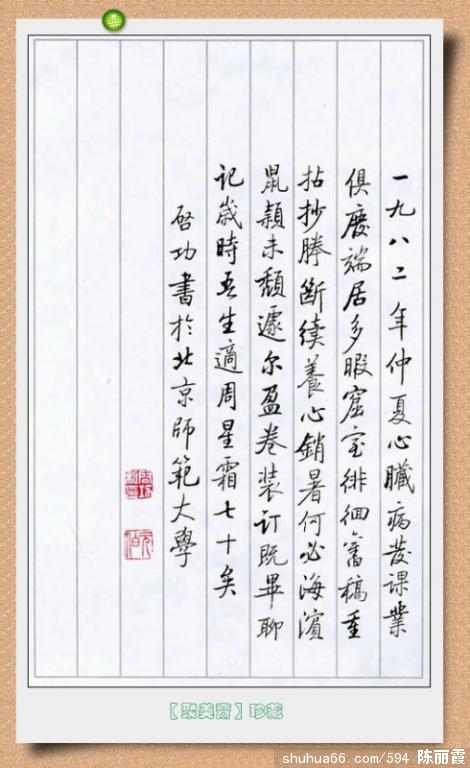 一九八二年仲夏心臟病發课業
俱廢端居多暇窟室徘徊舊稿重
拈抄謄斷續養心銷暑何必海濱
鼠穎未頹遽尔盈卷装订既畢聊
記歲時吾生適周星霜七十矣
啓功書於北京師範大學
元白
【聚美斋】珍藏
shuhua66.com/594 陈丽霞